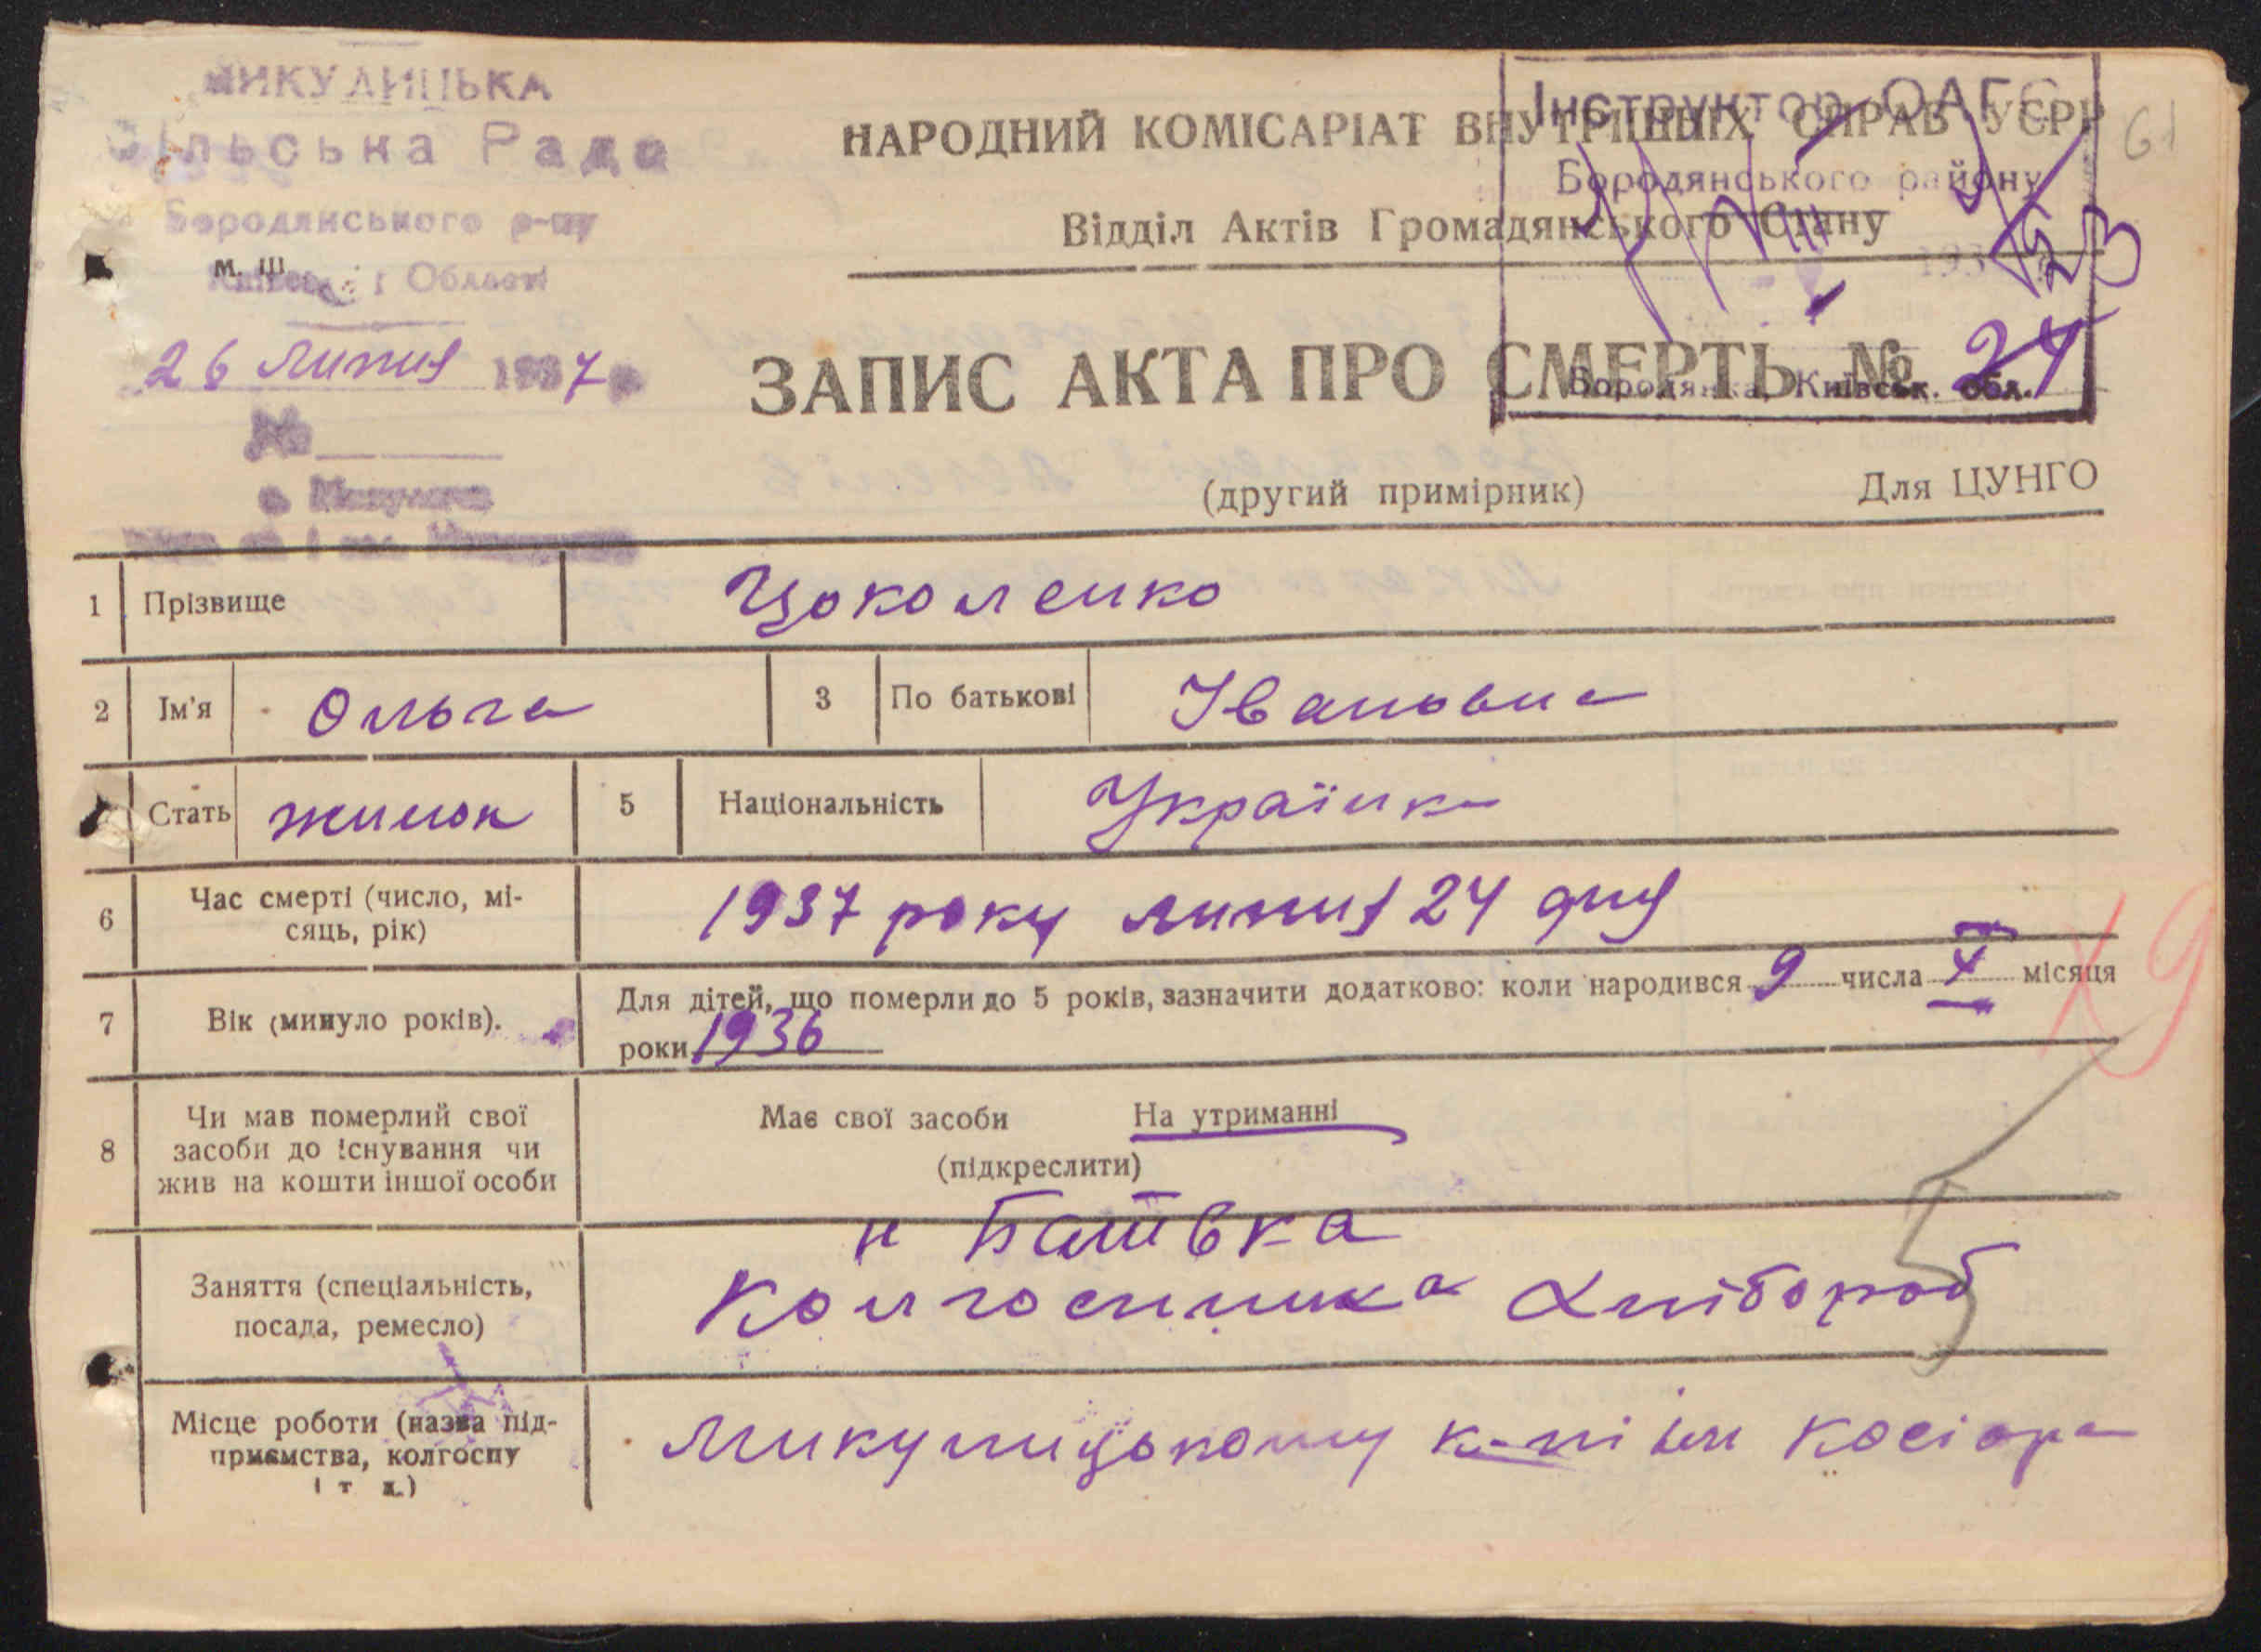 МИКУЛИЦЬКА
Сільська Рада
Бородянського р-ну
Київської Області
м. ш.
26 липня 1937 р
№
НАРОДНИЙ КОМІСАРІАТ ВНУТРІШНІХ СПРАВ УСРР
Відділ Актів Громадянського Стану
Інструктор ОАГС
Бородянського району
193
Бородянка, Київськ. обл.
61
ЗАПИС АКТА ПРО СМЕРТЬ № 24
23
(другий примірник)
Для ЦУНГО
1 Прізвище Цоколенко
2 Ім'я Ольга 3 По батькові Івановна
Стать жинок 5 Національність Українка
6 Час смерті (число, мі-
сяць, рік) 1937 року липня 24 дня
7 Вік (минуло років). Для дітей, що померли до 5 років, зазначити додатково: коли народився 9 числа X місяця
роки 1936
9
8 Чи мав померлий свої
засоби до існування чи
жив на кошти іншої особи
Має свої засоби На утриманні
(підкреслити)
н Батвка
Заняття (спеціальність,
посада, ремесло) Колгоспника Хлібороб
5
Місце роботи (назва під-
приємства, колгоспу
і т д.) Микулицькому к-пі ім Косіора